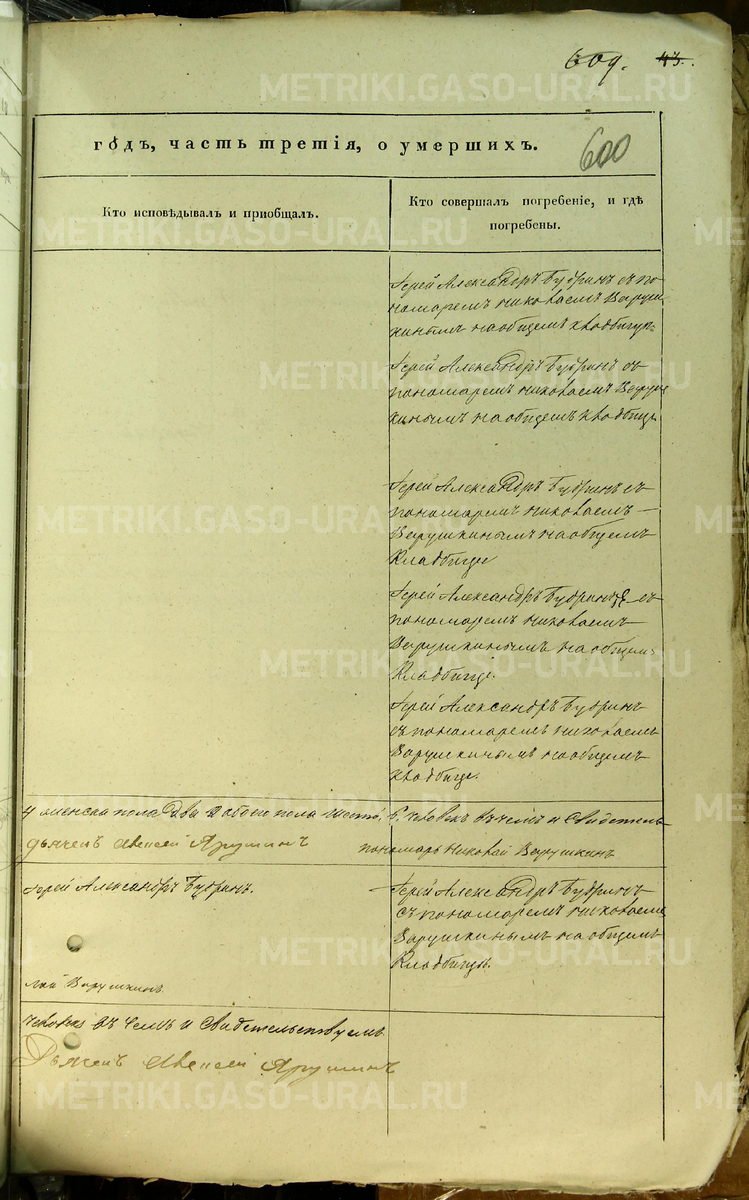 609. 43.
600
годъ, часть третія, о умершихъ.
Кто исповѣдывалъ и приобщалъ.
Кто совершалъ погребеніе, и гдѣ
погребены.
Іерей Александръ Будринъ съ по-
номаремъ Николаемъ Варуш
кинымъ на общемъ кладбищѣ.
Іерей Александръ Будринъ съ
пономаремъ Николаемъ Варуш
кинымъ на общемъ кладбищѣ
Іерей Александръ Будринъ съ
пономаремъ Николаемъ
Варушкинымъ на общемъ
кладбищѣ
Іерей Александръ Будринъ съ
пономаремъ Николаемъ
Варушкинымъ на общемъ
кладбищѣ.
Іерей Александръ Будринъ
съ пономаремъ Николаемъ
Варушкинымъ на общемъ
кладбищѣ.
женска пола два обоего пола шесть, 6, человѣкъ въ чемъ и свидетель
дьячекъ Алексей Ярушинъ пономарь Николай Варушкинъ
Іерей Александръ Будринъ.
Іерей Александръ Будринъ
съ пономаремъ Николаемъ
Варушкинымъ на общемъ
кладбищѣ.
лай Варушкинъ
человекъ въ чемъ и свидетельствуемъ
Дьячекъ Алексей Ярушинъ
METRIKI.GASO-URAL.RU